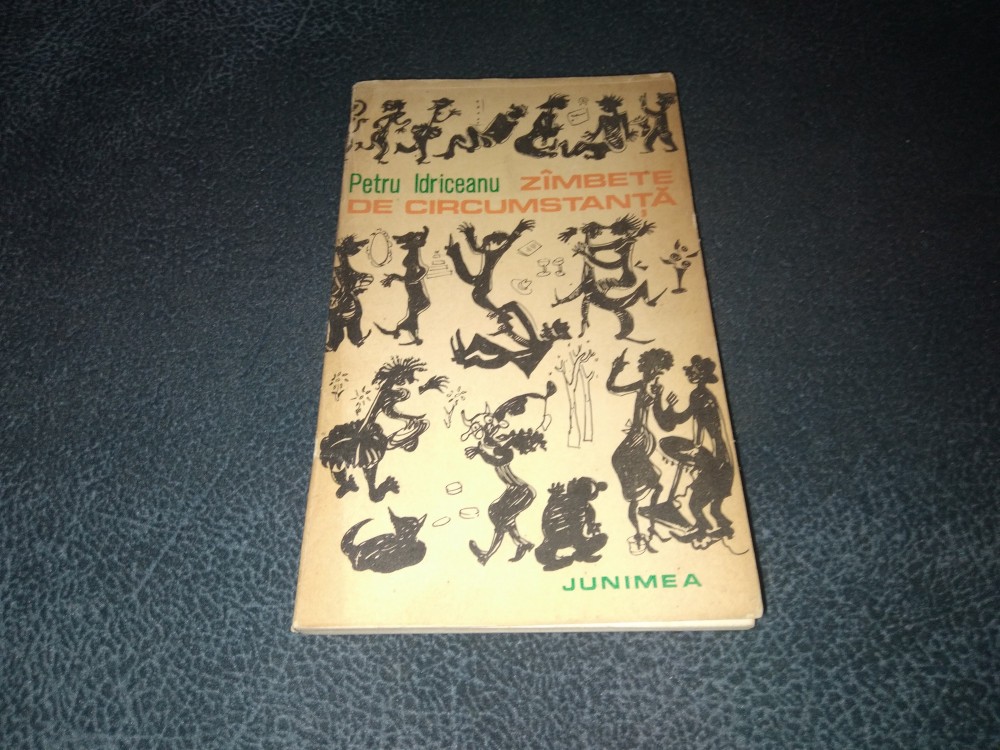 Petru Idriceanu ZÎMBETE
DE CIRCUMSTANȚĂ
JUNIMEA